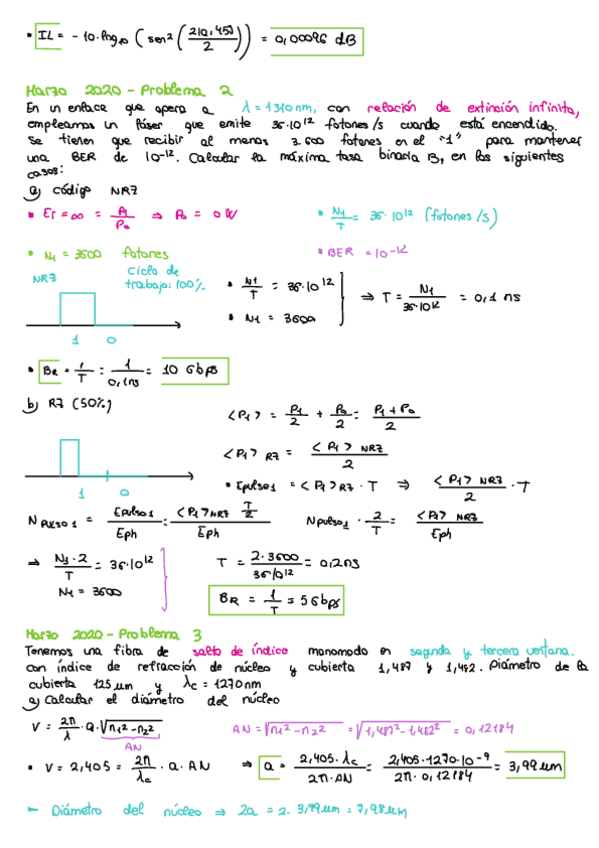 • IL = - 10·log₁₀ ( sen² ( 210,45)/2 ) ) = 0,00096 dB
Marzo 2020 - Problema 2
En un enlace que opera a λ = 1310 nm, con relación de extinción infinita,
empleamos un láser que emite 36·10¹² fotones/s cuando está encendido.
Se tienen que recibir al menos 3.600 fotones en el "1" para mantener
una BER de 10⁻¹². Calcular la máxima tasa binaria B, en los siguientes
casos:
a) código NRZ
• Er = ∞ = P₁/P₀ ⇒ P₀ = 0 W
• N₁/T = 36·10¹² (fotones/s)
• N₁ = 3600 fotones
• BER = 10⁻¹²
NRZ
Ciclo de
trabajo: 100%
• N₁/T = 36·10¹²
• N₁ = 3600
⇒ T = N₁/36·10¹² = 0,1 ns
1 0
• BR = 1/T = 1/0,1ns = 10 Gbps
b) RZ (50%)
<P₁> = P₁/2 + P₀/2 = P₁+P₀/2
<P₁> RZ = <P₁> NRZ/2
1 0
• Epulso1 = <P₁>RZ · T ⇒ <P₁> NRZ/2 · T
N PULSO 1 = Epulso1/Eph = <P₁>NRZ T/2/Eph
Npulso₁ · 2/T = <P₁> NRZ/Eph
⇒ N₁·2/T = 36·10¹²
N₁ = 3600
T = 2·3600/36·10¹² = 0,2ns
BR = 1/T = 5 Gbps
Marzo 2020 - Problema 3
Tenemos una fibra de salto de índice monomodo en segunda y tercera ventana.
con índice de refracción de núcleo y cubierta 1,487 y 1,482. Diámetro de la
cubierta 125 μm y λc = 1270 nm
a) Calcular el diámetro del núcleo
V = 2π/λ · a · √n₁² - n₂²
AN
AN = √n₁² - n₂² = √1,487² - 1,482² = 0,12184
• V = 2,405 = 2π/λc · a · AN
⇒ a = 2,405·λc/2π·AN = 2,405·1270·10⁻⁹/2π·0,12184 = 3,99 μm
- Diámetro del núcleo ⇒ 2a = 2·3,99 μm = 7,98 μm